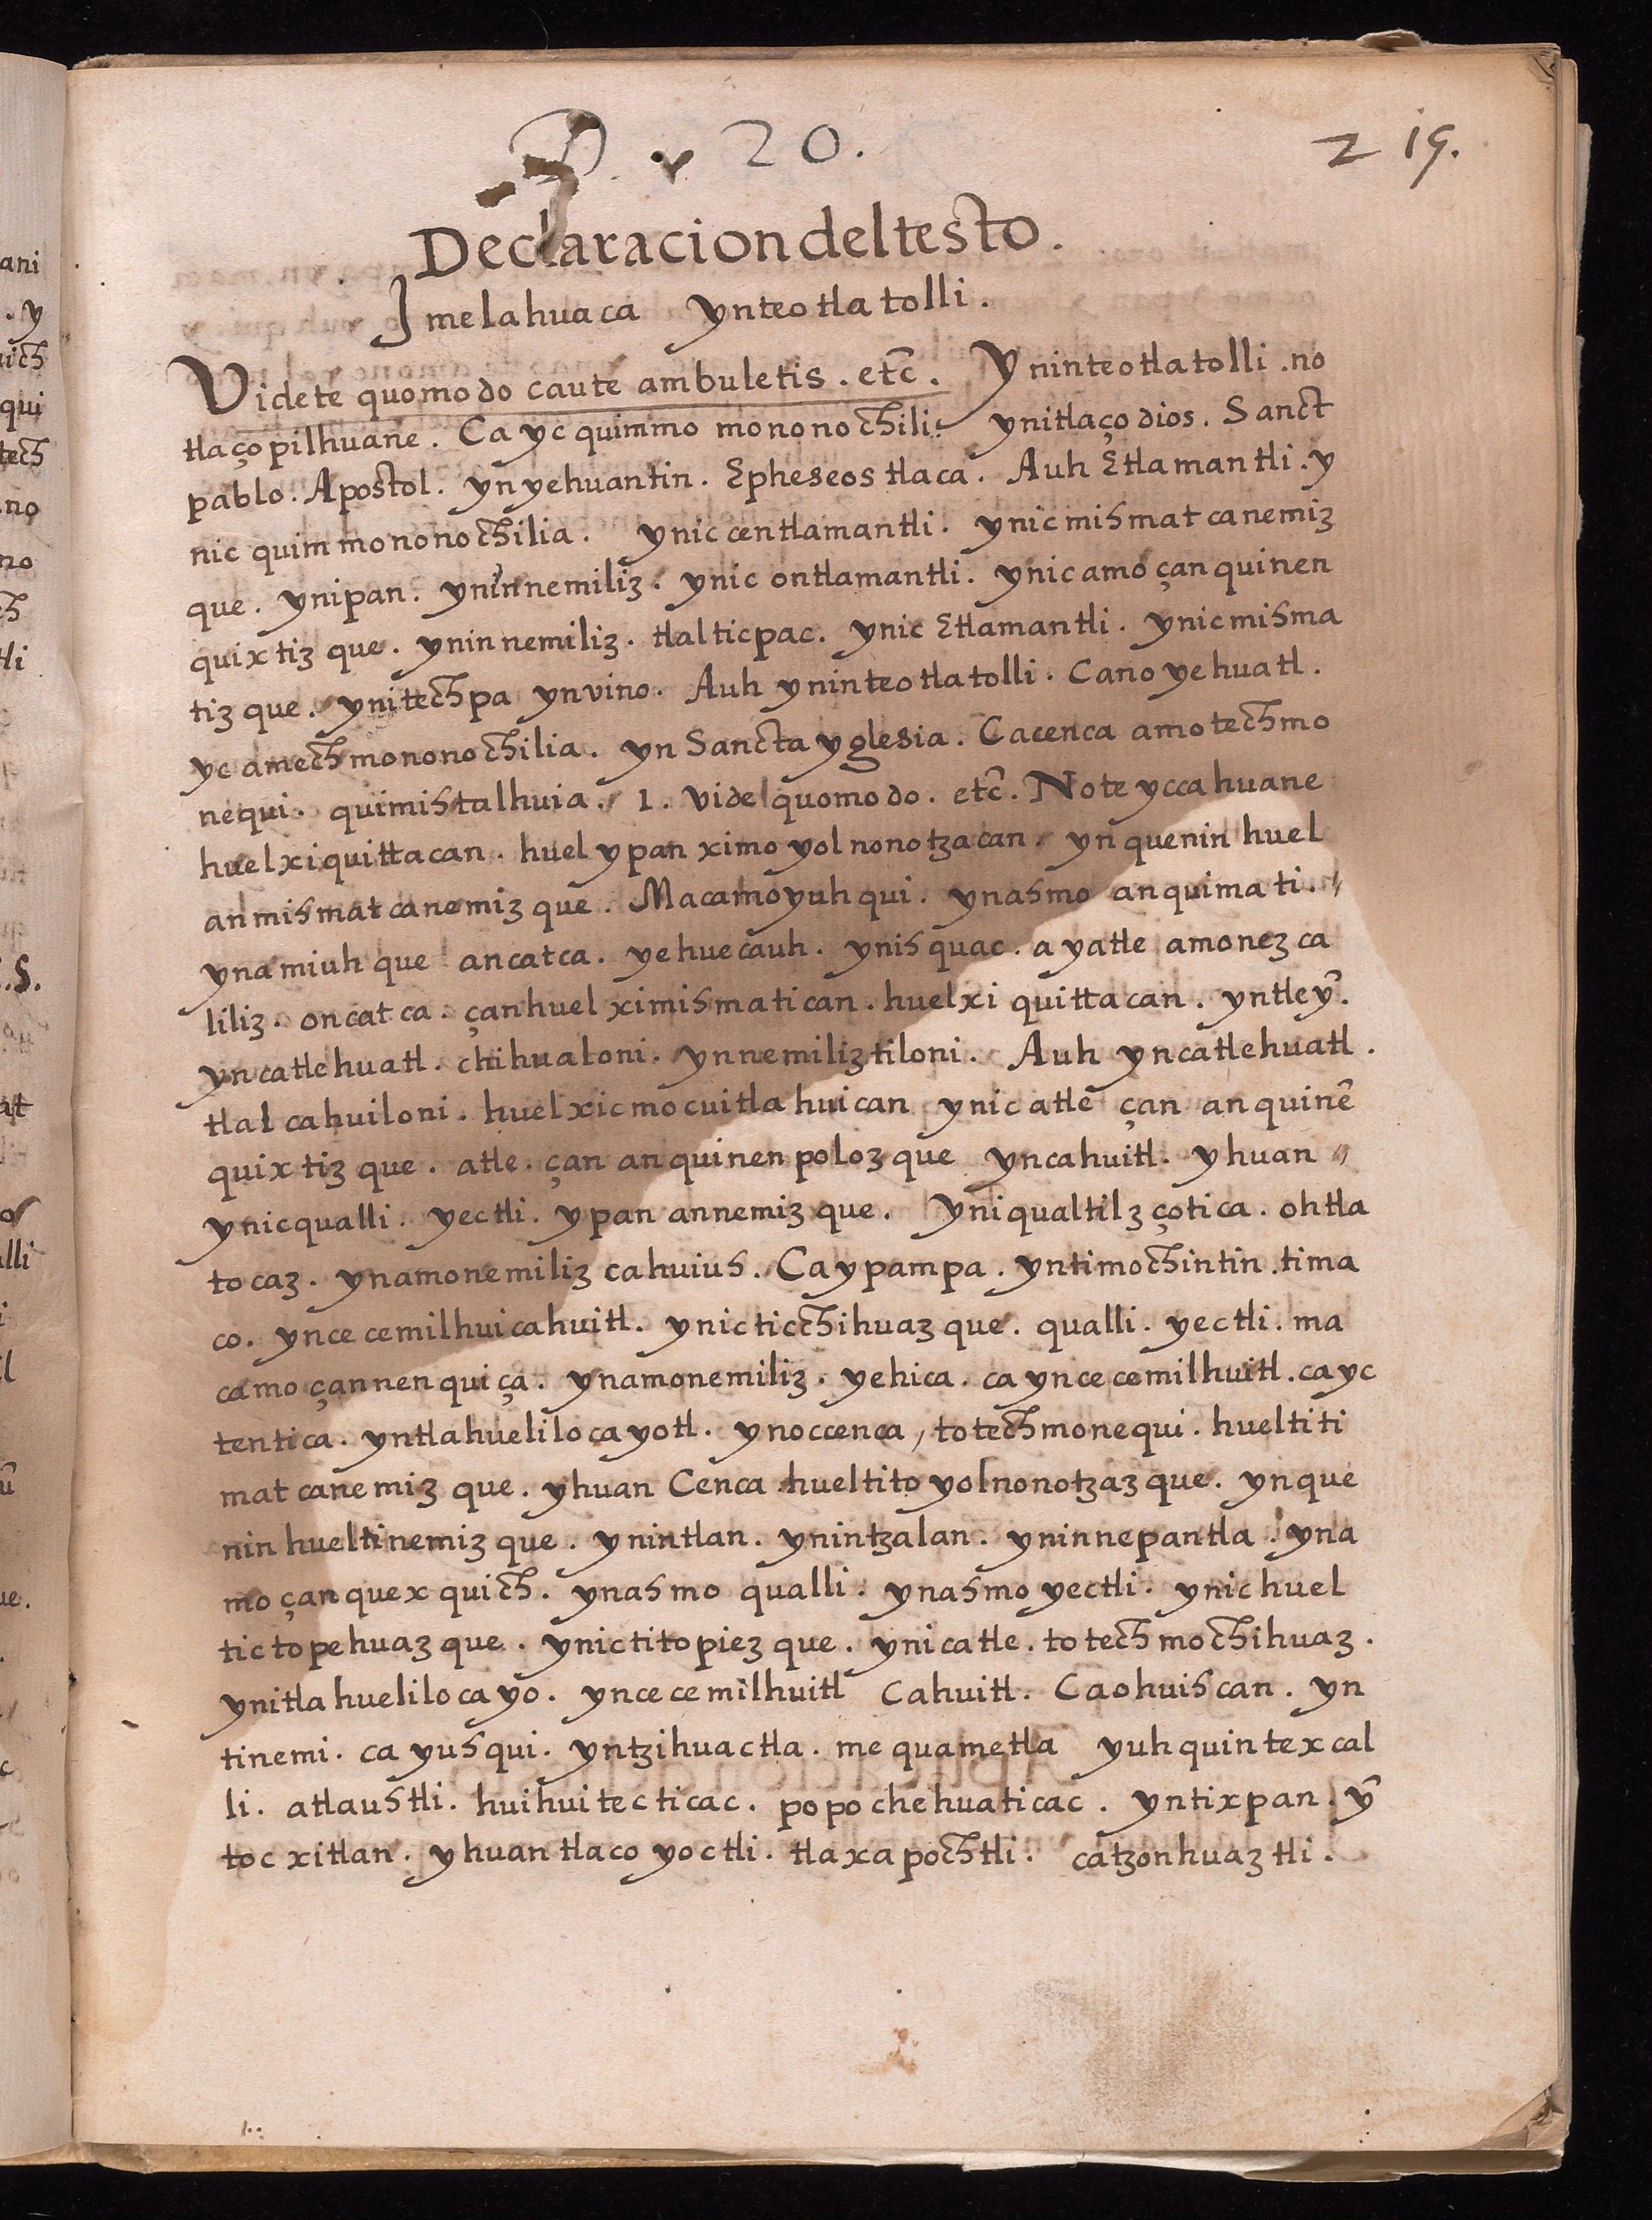 P. v 20.
219.
Declaracion del testo.
Imelahuaca ynteotlatolli.
Videte quomodo caute ambuletis. etc̄. Yninteotlatolli. no
tlaçopilhuane. Ca yc quimmo mononochili: ynitlaço dios. Sanct
pablo. Apostol. ynyehuantin. Epheseos tlaca. Auh Etlamantli. y
nic quimmononochilia. ynic centlamantli. ynic mismatcanemiz
que. ynipan. yninnemiliz. ynic ontlamantli. ynic amo çan quinen
quixtiz que. yninnemiliz. tlalticpac. ynic Etlamantli. ynic misma
tiz que. ynitechpa ynvino. Auh yninteotlatolli. Cano yehuatl.
yc amechmononochilia. yn Sancta yglesia. Cacenca amotechmo
nequi. quimistalhuia. 1. Vide quomodo. etc̄. Noteyccahuane
huelxiquittacan. huel ypan ximoyolnonotzacan. yn quenin huel
anmismatcanemiz que. Macamoyuhqui. ynasmo anquimati.
ynamiuhque ancatca. yehuecauh. ynisquac. ayatle amonezca
liliz. oncatca. çanhuel ximismatican. huelxi quittacan. yntleȳ.
yncatlehuatl. chihualoni. ynnemiliztiloni. Auh yncatlehuatl.
tlalcahuiloni. huelxicmocuitlahuican ynic atle çan anquinē
quixtiz que. atle. çan anquinenpoloz que yncahuitl. yhuan
ynicqualli. yectli. ypan annemiz que. Yniqualtilz çotica. ohtla
tocaz. ynamonemiliz cahuius. Ca ypampa. yntimochintin. tima
co. yncecemilhuicahuitl. ynic ticchihuaz que. qualli. yectli. ma
camo çannenquiça. ynamonemiliz. yehica. ca yncecemilhuitl. ca yc
tentica. yntlahuelilocayotl. ynoccenca, totechmonequi. hueltiti
matcanemiz que. yhuan Cenca hueltitoyolnonotzaz que. ynque
nin hueltinemiz que. ynintlan. ynintzalan. yninnepantla. yna
mo çanquexquich. ynasmo qualli. ynasmo yectli. ynic huel
tictopehuaz que. ynic titopiez que. ynicatle. totechmochihuaz.
ynitlahuelilocayo. yncecemilhuitl Cahuitl. Caohuiscan. yn
tinemi. ca yusqui. yntzihuactla. mequametla yuhquintexcal
li. atlaustli. huihuitecticac. popochehuaticac. yntixpan. ȳ
tocxitlan. yhuan tlacoyoctli. tlaxapochtli. catzonhuaztli.